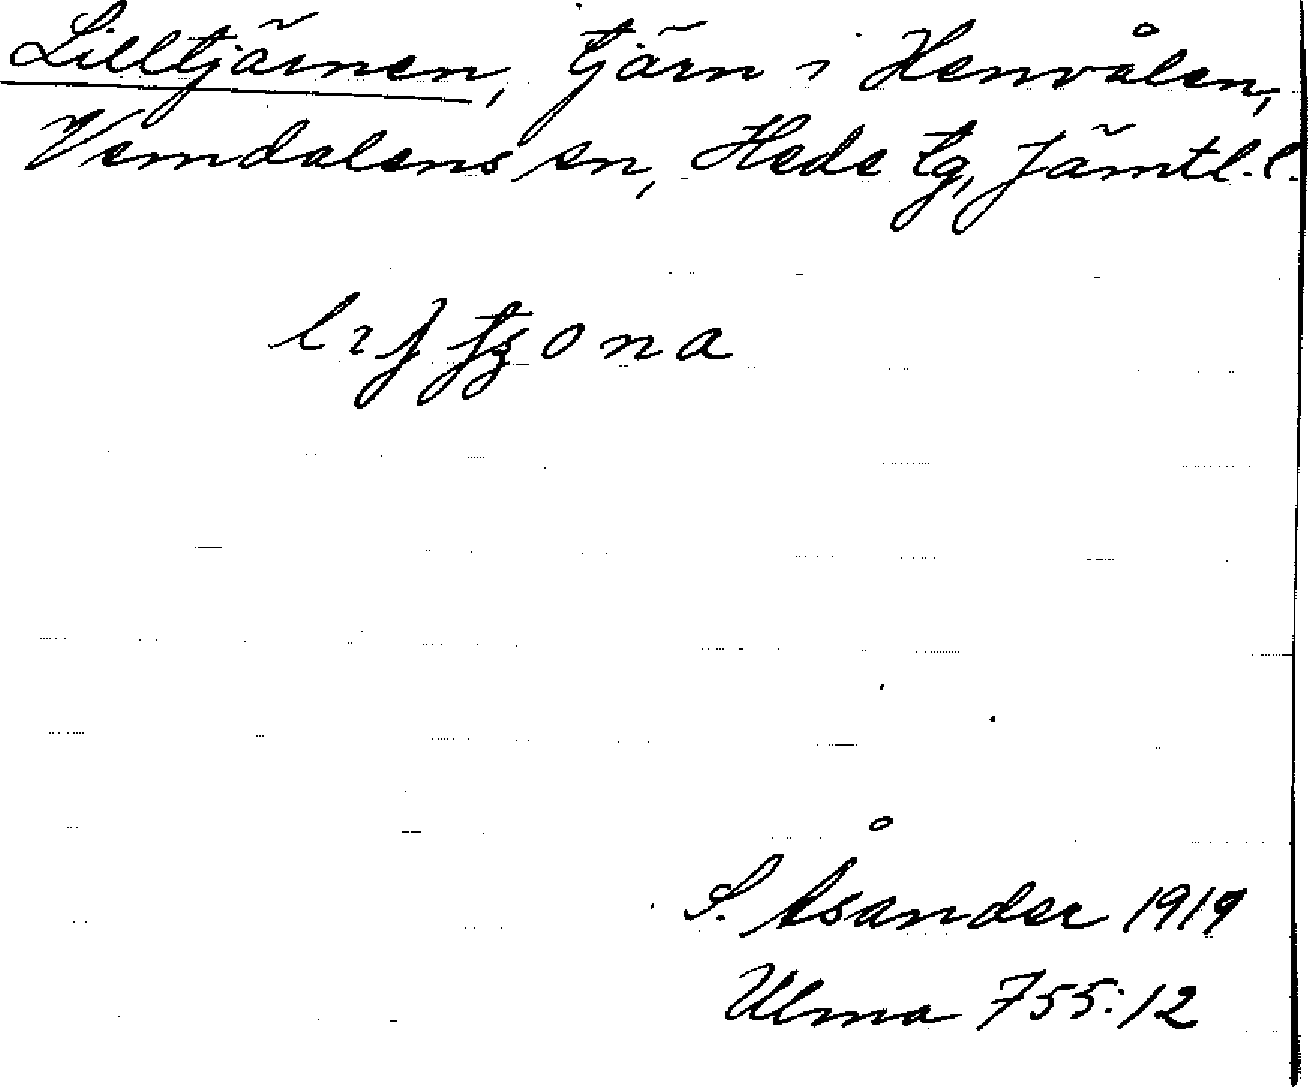 Lilltjärnen, tjärn i Henvålen,
Vemdalens sn, Hede tg, Jämtl. l.
S. Åsander 1919
Ulma 755:12